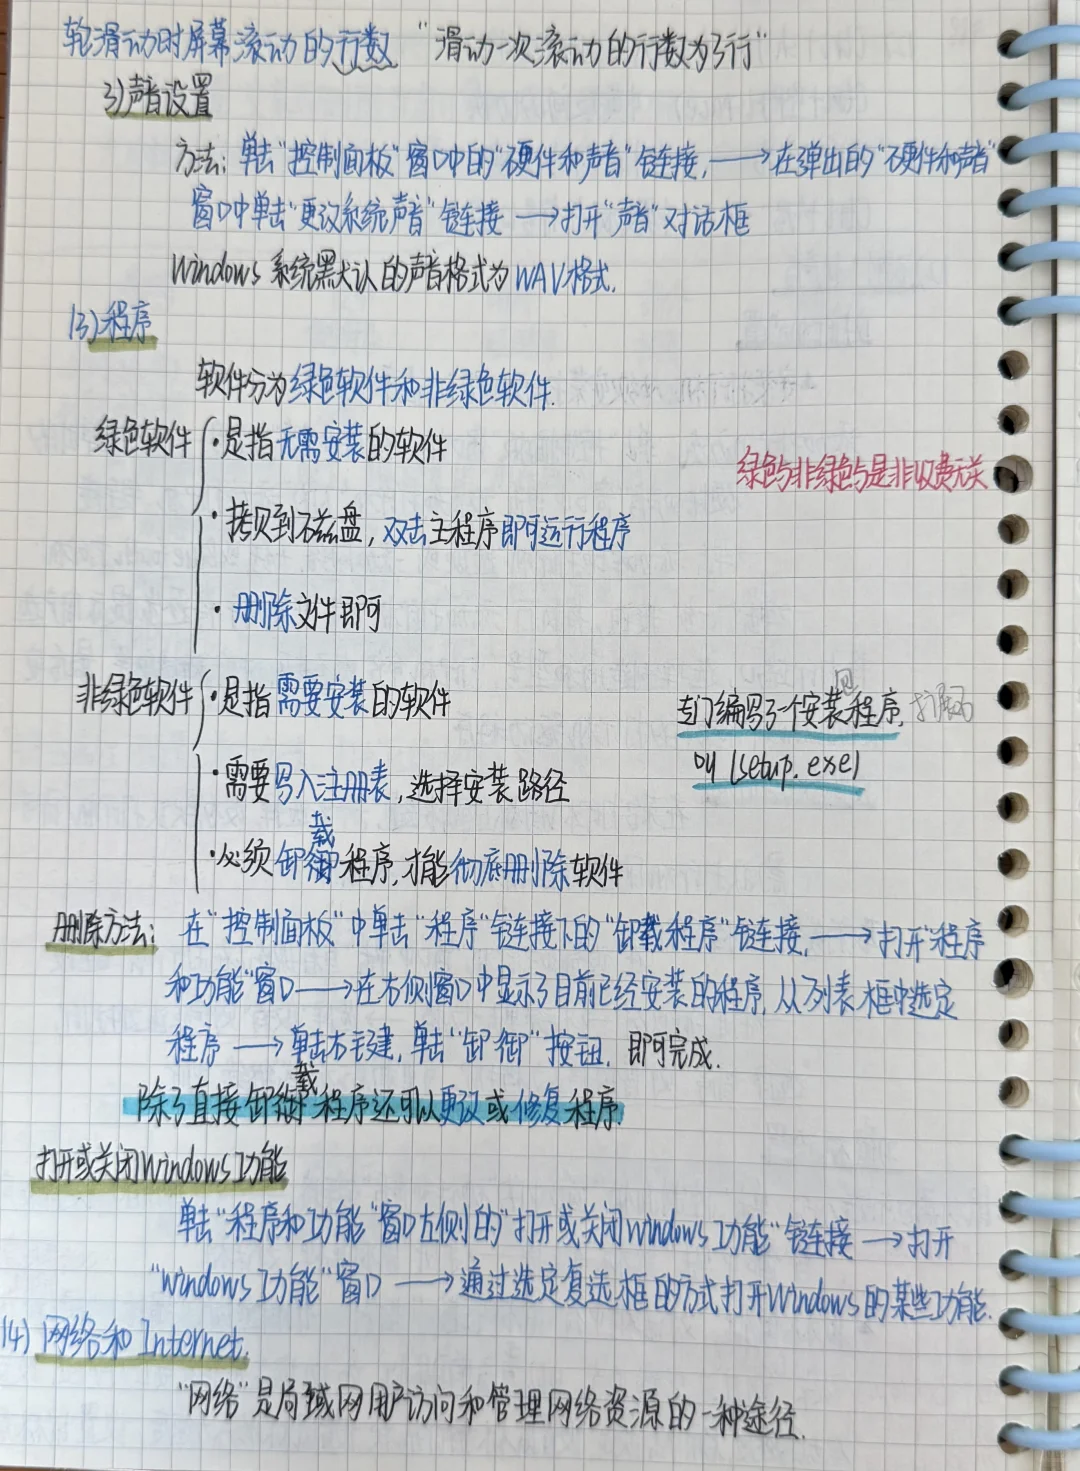 轮滑动时屏幕滚动的行数 “滑动一次滚动的行数为3行”
3)声音设置
方法: 单击“控制面板”窗口中的“硬件和声音”链接, → 在弹出的“硬件和声音”
窗口中单击“更改系统声音”链接 → 打开“声音”对话框
Windows系统默认的声音格式为WAV格式.
13)程序
软件分为绿色软件和非绿色软件.
绿色软件 · 是指无需安装的软件
绿色与非绿色与是非收费无关
· 拷贝到磁盘, 双击主程序即可运行程序
· 删除文件即可
非绿色软件 · 是指需要安装的软件
专门编写了一个安装程序,
(setup.exe)
· 需要写入注册表, 选择安装路径
· 必须卸载程序, 才能彻底删除软件
删除方法: 在“控制面板”中单击“程序”链接下的“卸载程序”链接, → 打开“程序
和功能”窗口 → 在右侧窗口中显示了目前已经安装的程序, 从列表框中选定
程序 → 单击右键, 单击“卸御”按钮, 即可完成.
除了直接卸载程序还可以更改或修复程序
打开或关闭Windows功能
单击“程序和功能”窗口左侧的“打开或关闭Windows功能”链接 → 打开
“Windows功能”窗口 → 通过选定复选框的方式打开Windows的某些功能.
14)网络和Internet.
“网络”是局域网用户访问和管理网络资源的一种途径.